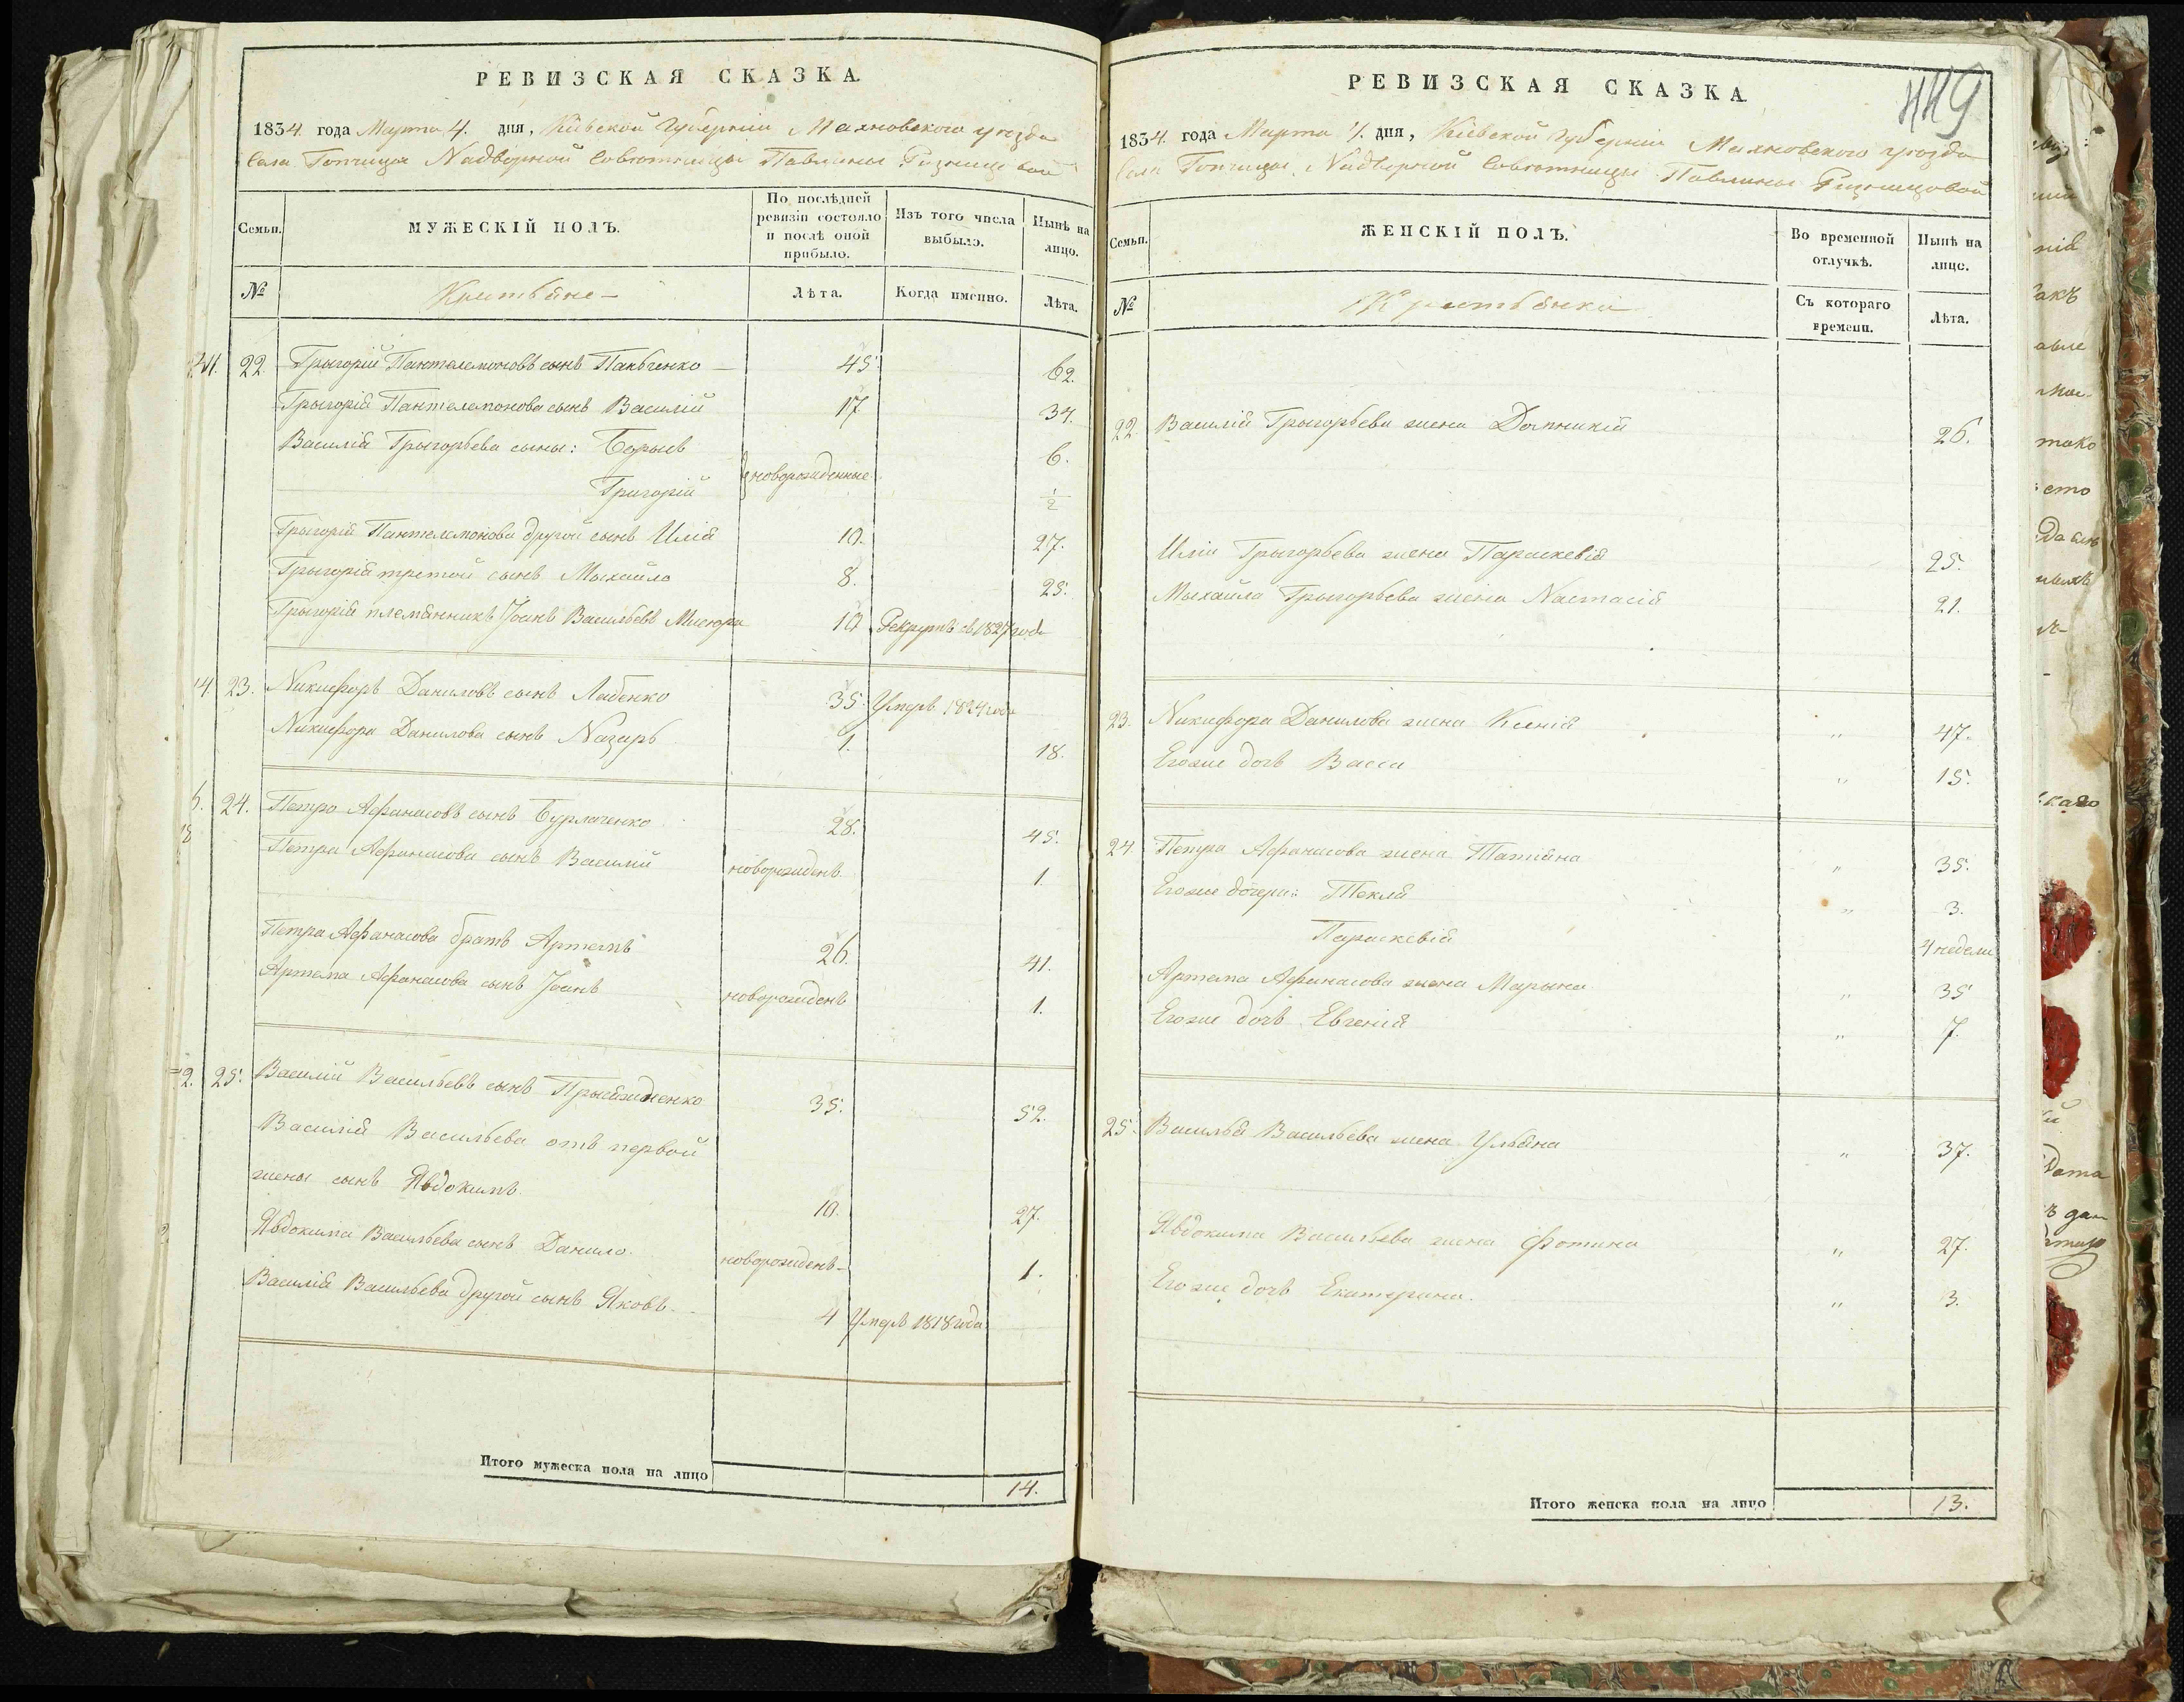 РЕВИЗСКАЯ СКАЗКА.
1834. года Марта 4. дня, Кіевской Губерніи Махновскаго уезда
Села Топчищи Надворной Совѣтницы Павлины
Семьи.
МУЖЕСКІЙ ПОЛЪ.
По послѣдней ревизіи состояло и послѣ оной прибыло.
Изъ того числа выбыло.
Нынѣ на лицо.
№
Лѣта.
Когда именно.
Лѣта.
22. Грыгорій Пантелемоновъ сынъ 45. 62.
Грыгорія Пантелемонова сынъ Василій 17 34.
Василія Грыгорьева сыны: Борысъ 6.
новорожденные
Григорій ½
Грыгорія Пантелемонова другой сынъ Илія 10. 27.
Грыгорія третой сынъ Мыхайло 8. 25.
Грыгорія племянникъ Іоанъ Васильевъ Мисюра 10 Рекрутъ съ 1827 года
14. 23. Никифоръ Даниловъ сынъ Лабенко 35. Умеръ 1824 года
Никифора Данилова сынъ Назаръ 1. 18.
6. 24. Петро Афанасовъ сынъ Бурлаченко 28. 45.
18
Петра Афанасова сынъ Василий новорожденъ 1.
Петра Афанасова братъ Артемъ 26. 41.
Артема Афанасова сынъ Іоанъ новорожденъ 1.
2. 25. Василий Васильевъ сынъ 35. 52.
Василія Васильева отъ первой
жены сынъ Явдокимъ. 10. 27.
Явдокима Васильева сынъ Данило. новорожденъ 1.
Василія Васильева другой сынъ Яковъ. 4 Умеръ 1818 года
Итого мужеска пола на лицо 14.
449
РЕВИЗСКАЯ СКАЗКА.
1834. года Марта 4. дня, Кіевской Губерніи Махновскаго уезда
Села Топчищи Надворной Совѣтницы Павлины
Семьи.
ЖЕНСКІЙ ПОЛЪ.
Во временной отлучкѣ.
Нынѣ на лицо.
№
Съ котораго времени.
Лѣта.
22. Василія Грыгорьева жена 26.
Иліи Грыгорьева жена Параскевія 25.
Мыхайла Грыгорьева жена Настасія 21.
23. Никифора Данилова жена Ксенія " 47.
Егоже дочь Васса " 15.
24. Петра Афанасова жена Татіяна " 35.
Егоже дочери: Текля " 3.
Параскевія 4 недели
Артема Афанасова жена Марына " 35
Егоже дочь Евгенія " 7.
25. Василья Васильева жена Ульяна " 37.
Явдокима Васильева жена Фотина " 27.
Егоже дочь Екатерина. " 3.
Итого женска пола на лицо 13.